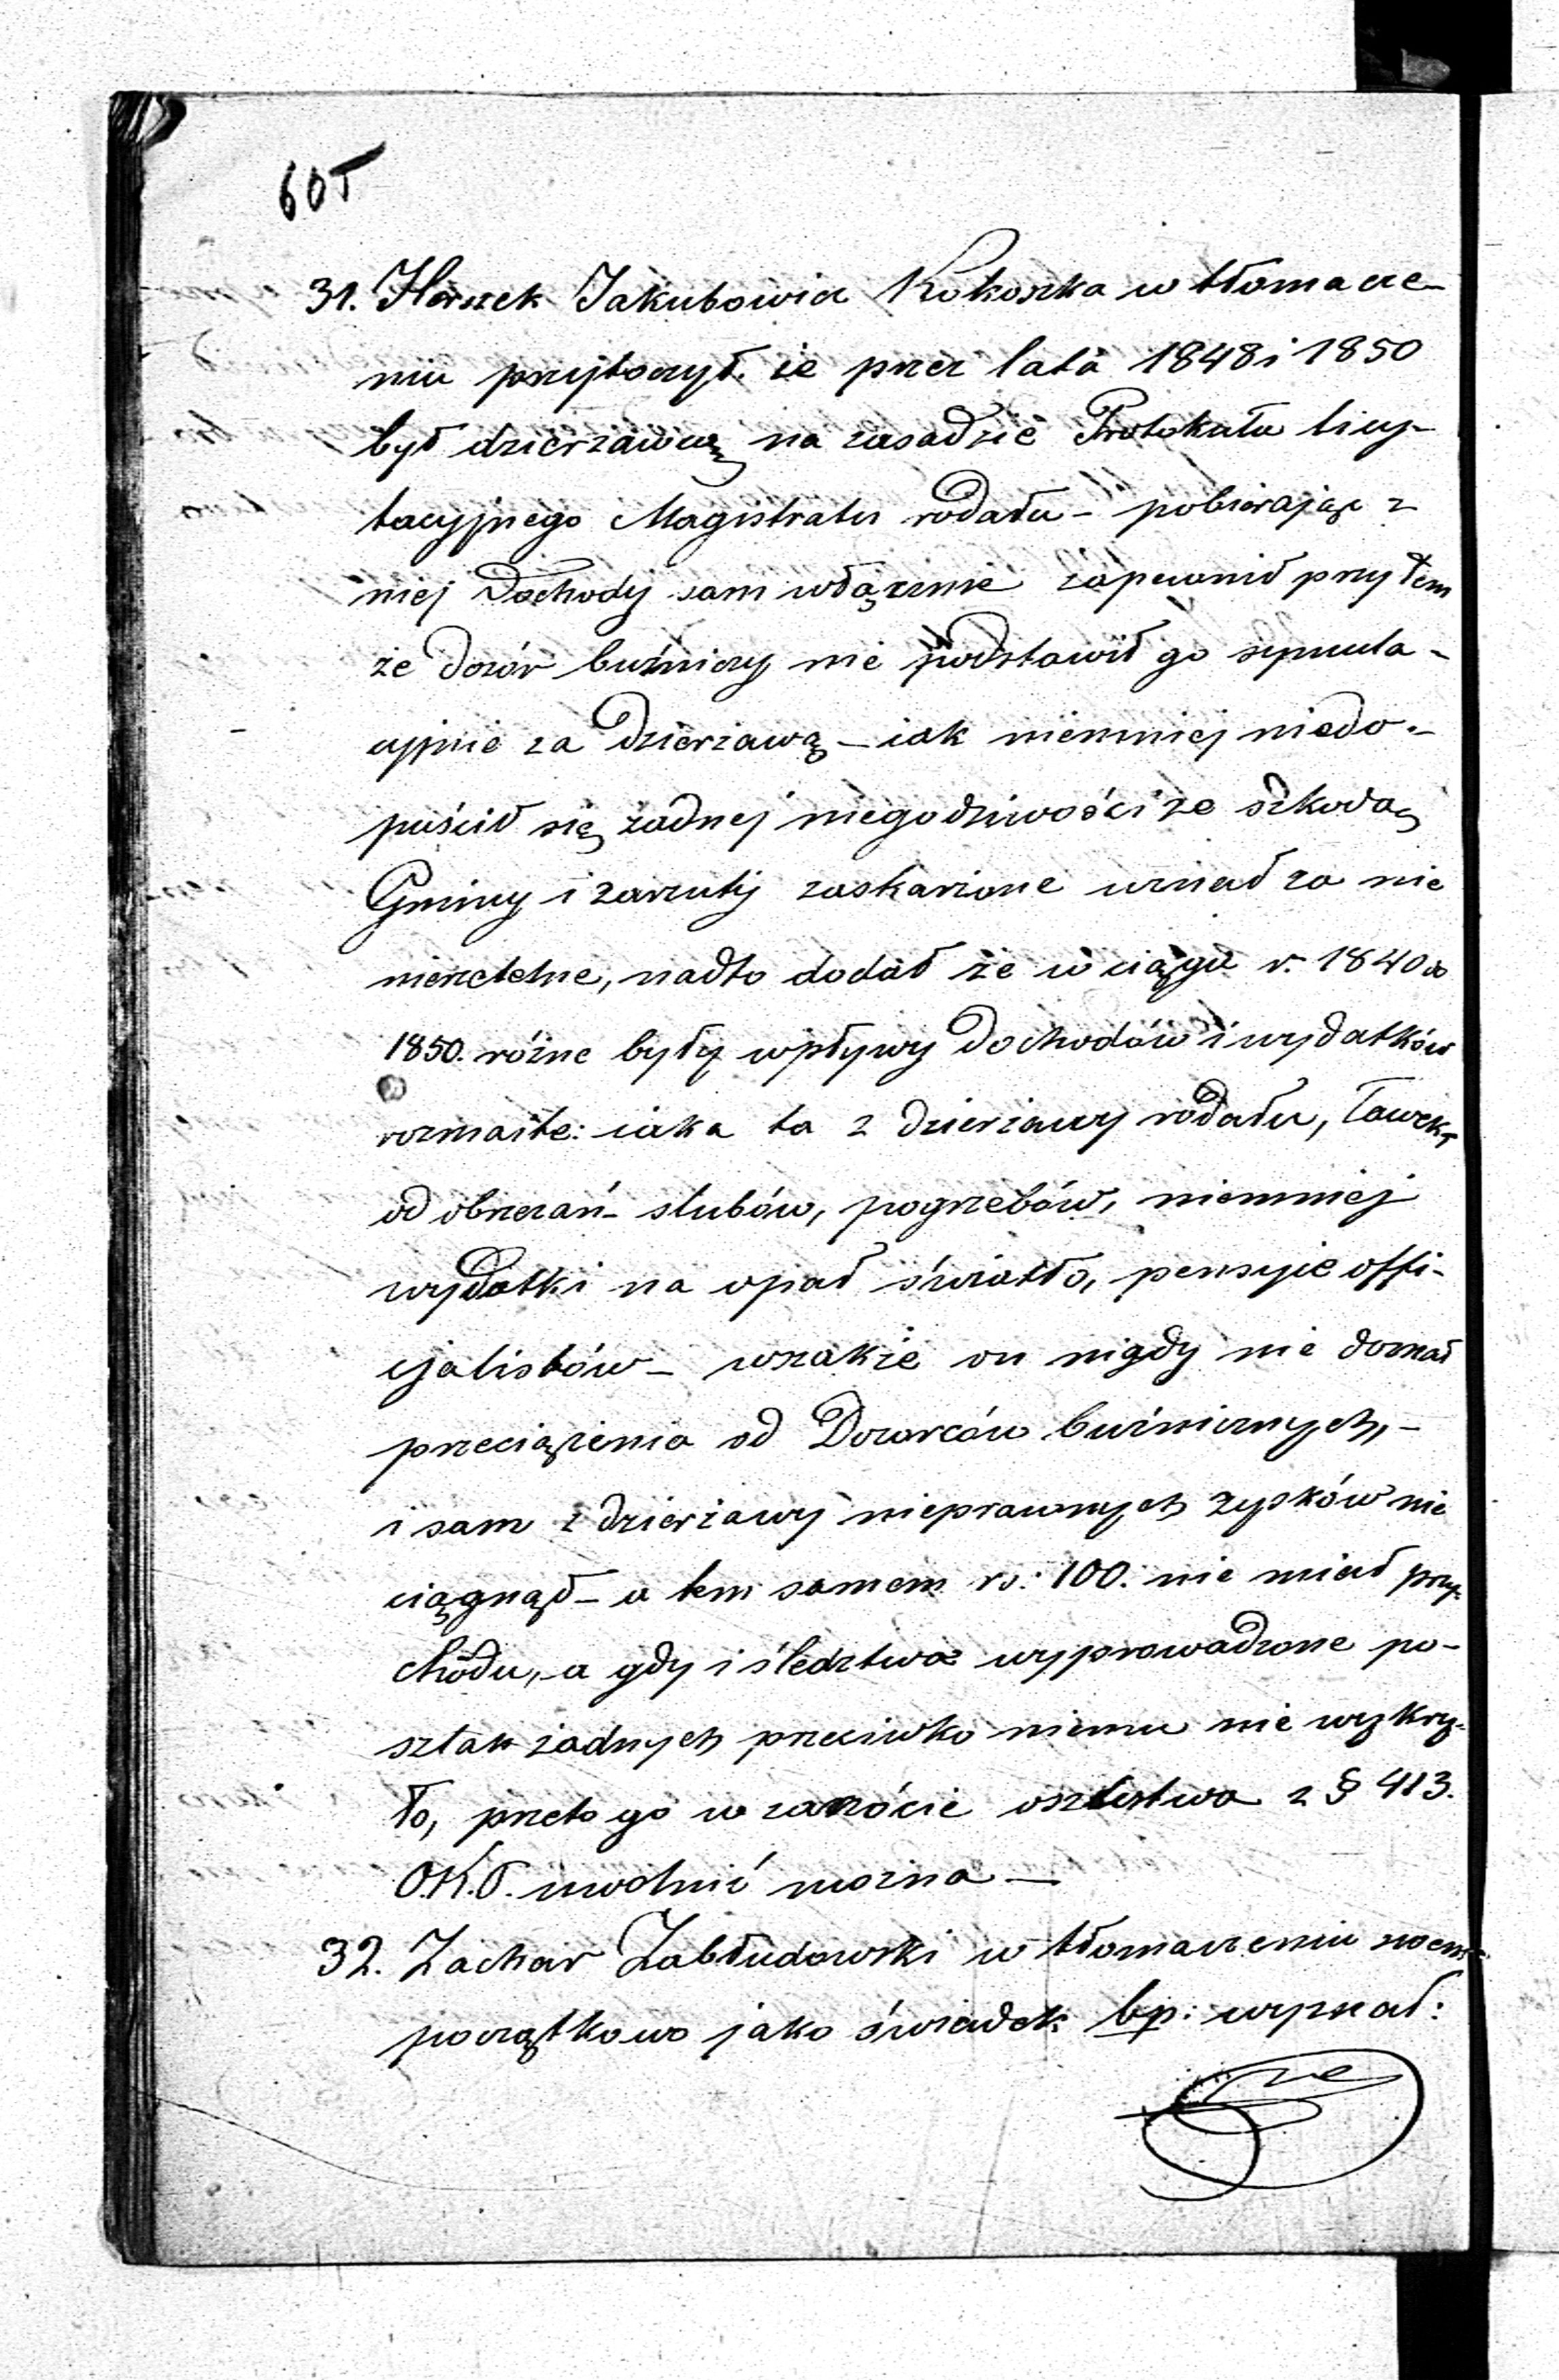 605
31. Herszek Jakubowicz Kokoszka w tłomacze-
niu przytoczył. że przez lata 1848 i 1850
był dzierżawcą na zasadzie Protokułu licy-
tacyjnego Magistratu rodału - pobierając z
niej Dochody sam włącznie zapewnił przytem
że dozór buźniczy nie podstawił go symula-
cyjnie za dzierżawcą - iak niemniej niedo-
puścił się żadnej niegodziwości ze szkodą
Gminy i zarzuty zaskarżone uznał za nie
nierzetelne, nadto dodał że w ciągu r. 1840 do
1850. różne były wpływy dochodów i wydatków
rozmaite: iaka to z dzierżawy rodału, ławek,
od obrzezań - slubów, pogrzebów, niemniej
wydatki na opał światło, pensyie offi-
cjalistów - wszakże on nigdy nie doznał
przeciążenia od Dozorców buźnicznych, -
i sam z dzierżawy nieprawnych zysków nie
ciągnął - a tem samem rs: 100. nie miał przy-
chodu, - a gdy i śledztwo wyprowadzone po-
szlak żadnych przeciwko niemu nie wykry-
ło, przeto go w zarzócie oszustwa z § 413.
O.K.P. uwolnić można —
32. Zachar Zabłudowski w tłomaczeniu swem
początkowo jako świadek bp: wyznał:
że